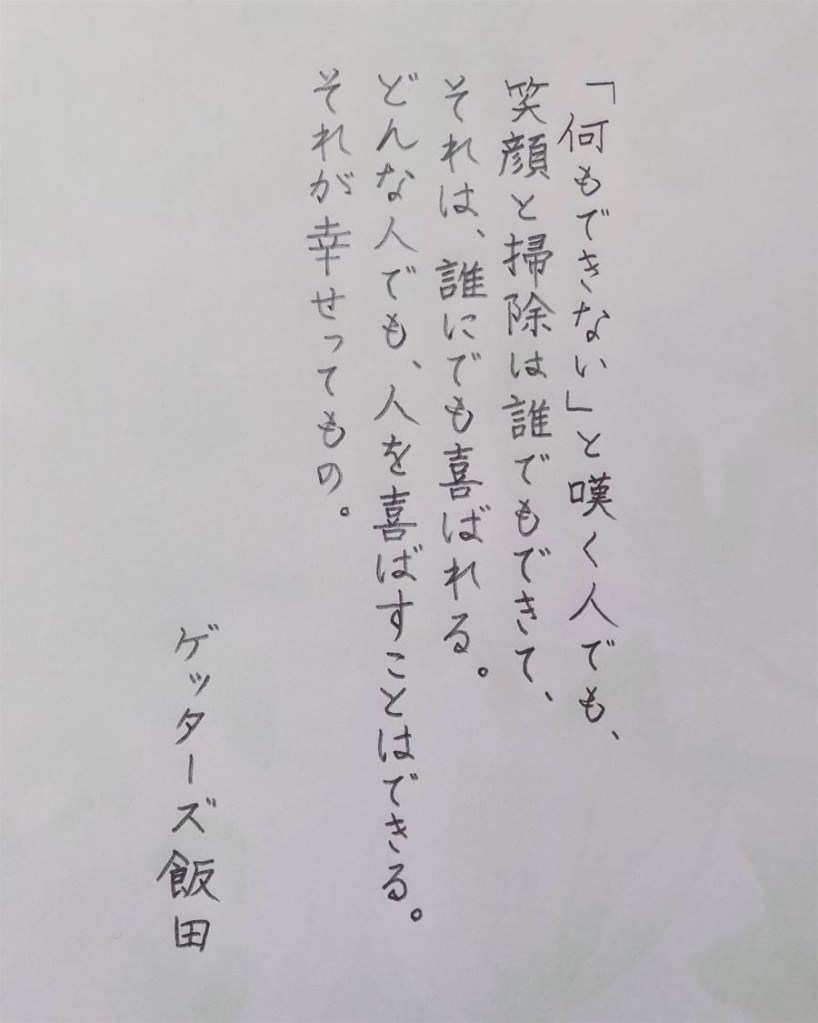 「何もできない」と嘆く人でも、
笑顔と掃除は誰でもできて、
それは、誰にでも喜ばれる。
どんな人でも、人を喜ばすことはできる。
それが幸せってもの。
ゲッターズ飯田